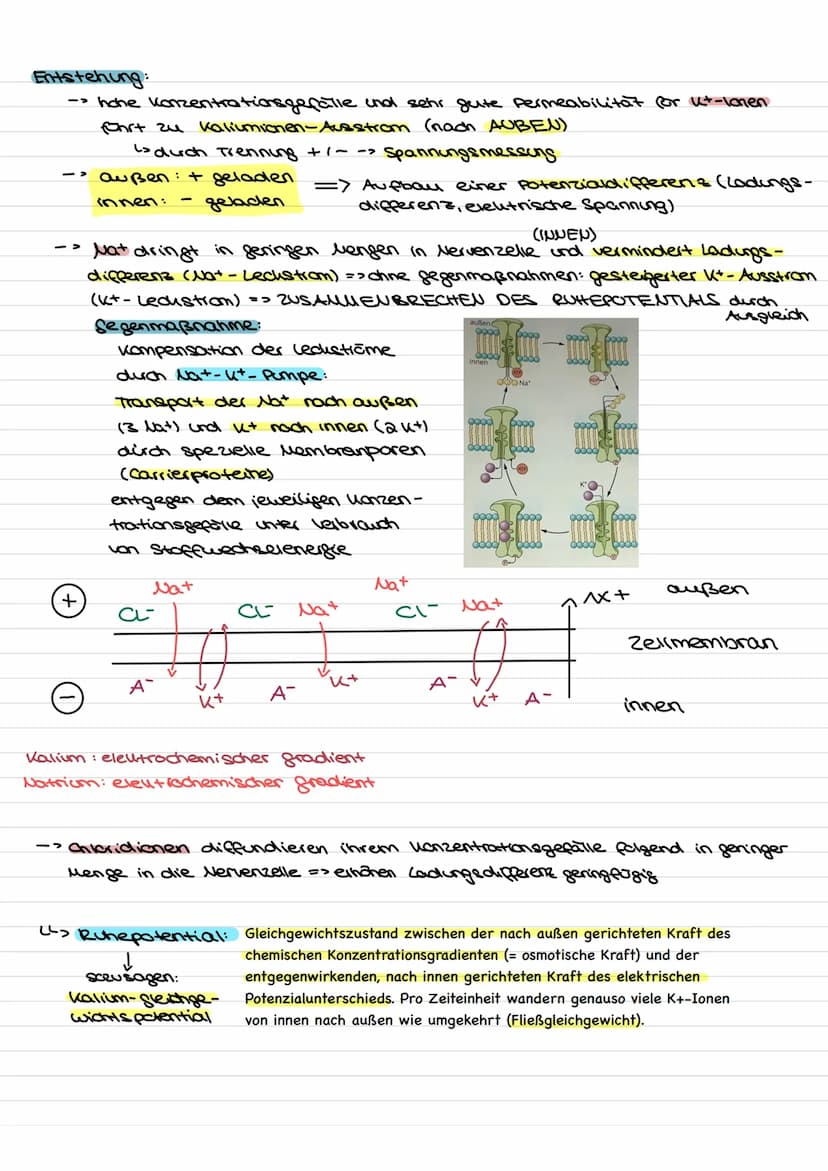 Entstehung:
-> hohe Konzentrationsgefälle und sehr gute Permeabilität für K+-Ionen
führt zu Kaliumionen-Ausstrom (nach AUßEN)
↳ durch Trennung +/- -> Spannungsmessung
-> außen: + geladen
innen: - geladen
=> Aufbau einer Potenzialdifferenz (Ladungs-
differenz, elektrische Spannung)
(INNEN)
-> Na+ dringt in geringen Mengen in Nervenzelle und vermindert Ladungs-
differenz (Na+-Leckstrom) => ohne Gegenmaßnahmen: gesteigerter K+-Ausstrom
(K+-Leckstrom) => ZUSAMMENBRECHEN DES RUHEPOTENTIALS durch
Ausgleich
Gegenmaßnahme:
Kompensation der Leckströme
durch Na+-K+-Pumpe:
Transport der Na+ nach außen
(3 Na+) und K+ nach innen (2 K+)
durch spezielle Membranporen
(Carrierproteine)
entgegen dem jeweiligen Konzen-
trationsgefälle unter Verbrauch
von Stoffwechselenergie
außen
innen
Na+
K+
+ Na+ Na+ außen
Cl- Cl- Na+ Cl- Na+
Zellmembran
- A- K+ A- K+ A- K+ A- innen
Kalium: elektrochemischer Gradient
Natrium: elektrochemischer Gradient
-> Chloridionen diffundieren ihrem Konzentrationsgefälle folgend in geringer
Menge in die Nervenzelle => erhöhen Ladungsdifferenz geringfügig
↳> Ruhepotential:
↓
sozusagen:
Kalium-Gleichge-
wichtspotential
Gleichgewichtszustand zwischen der nach außen gerichteten Kraft des
chemischen Konzentrationsgradienten (= osmotische Kraft) und der
entgegenwirkenden, nach innen gerichteten Kraft des elektrischen
Potenzialunterschieds. Pro Zeiteinheit wandern genauso viele K+-Ionen
von innen nach außen wie umgekehrt (Fließgleichgewicht).